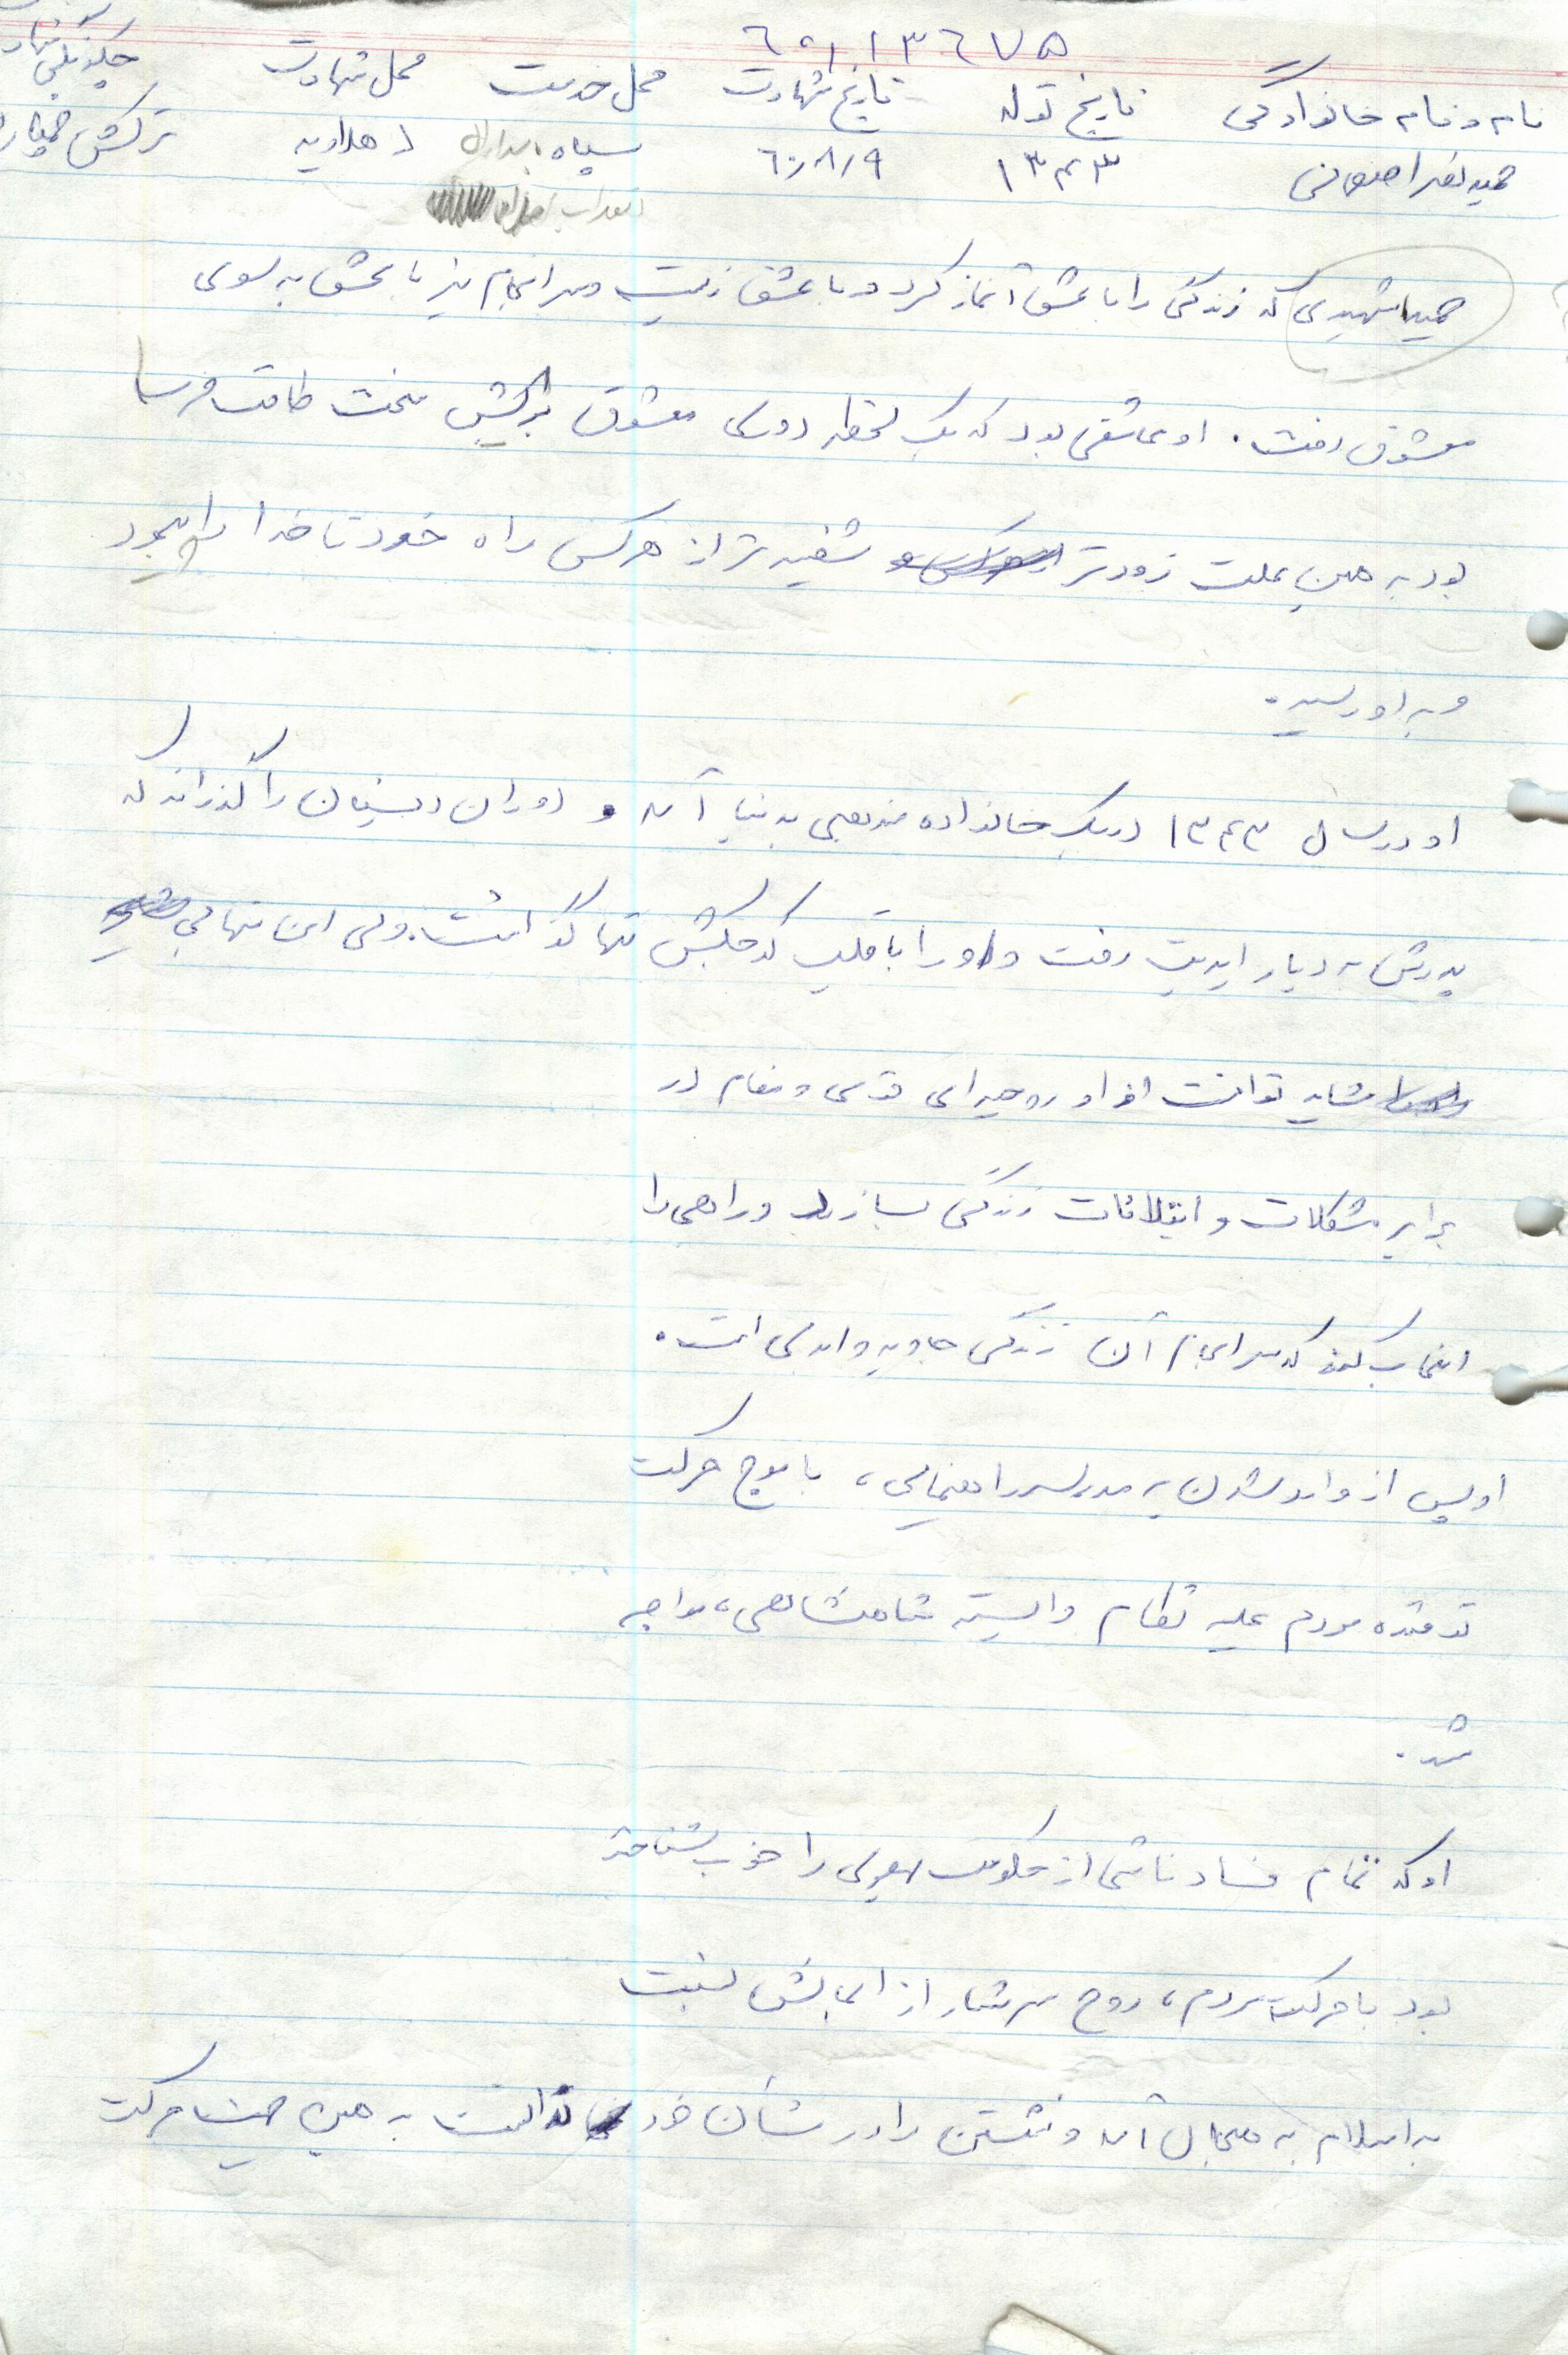 ۶۰۱۱۳۶۷۵
نام و نام خانوادگی تاریخ تولد تاریخ شهادت محل خدمت محل شهادت چگونگی شهادت
حمید نصر اصفهانی ۱۳۴۳ ۶۰/۸/۹ سپاه پاسداران دهلاویه ترکش خمپاره
انقلاب
حمید شهیدی که زندگی را با عشق آغاز کرد و با عشق زیست و سرانجام نیز با عشق به سوی
معشوق رفت. او عاشقی بود که یک لحظه دوری معشوق برایش سخت طاقت فرسا
بود به همین علت زودتر از هرکس راه خود تا خدا را پیمود
و به او رسید.
او در سال ۱۳۴۳ در یک خانواده مذهبی به دنیا آمد و دوران دبستان را گذراند که
پدرش به دیار ابدیت رفت و او را با قلب کوچکش تنها گذاشت. ولی این تنهایی
شاید توانست از او روحیه‌ای قوی و مقاوم در
برابر مشکلات و ابتلائات زندگی بسازد و راهی را
انتخاب کند که سرانجام آن زندگی جاوید و ابدی است.
او پس از وارد شدن به مدرسه راهنمایی، با موج حرکت
توفنده مردم علیه نظام وابسته شاهنشاهی، مواجه
شد.
او که تمام فساد ناشی از حکومت پهلوی را خوب شناخته
بود با حرکت مردم، روح سرشار از ایمانش نسبت
به اسلام به هیجان آمد و نشستن را در شأن خود ندانست به همین جهت حرکت